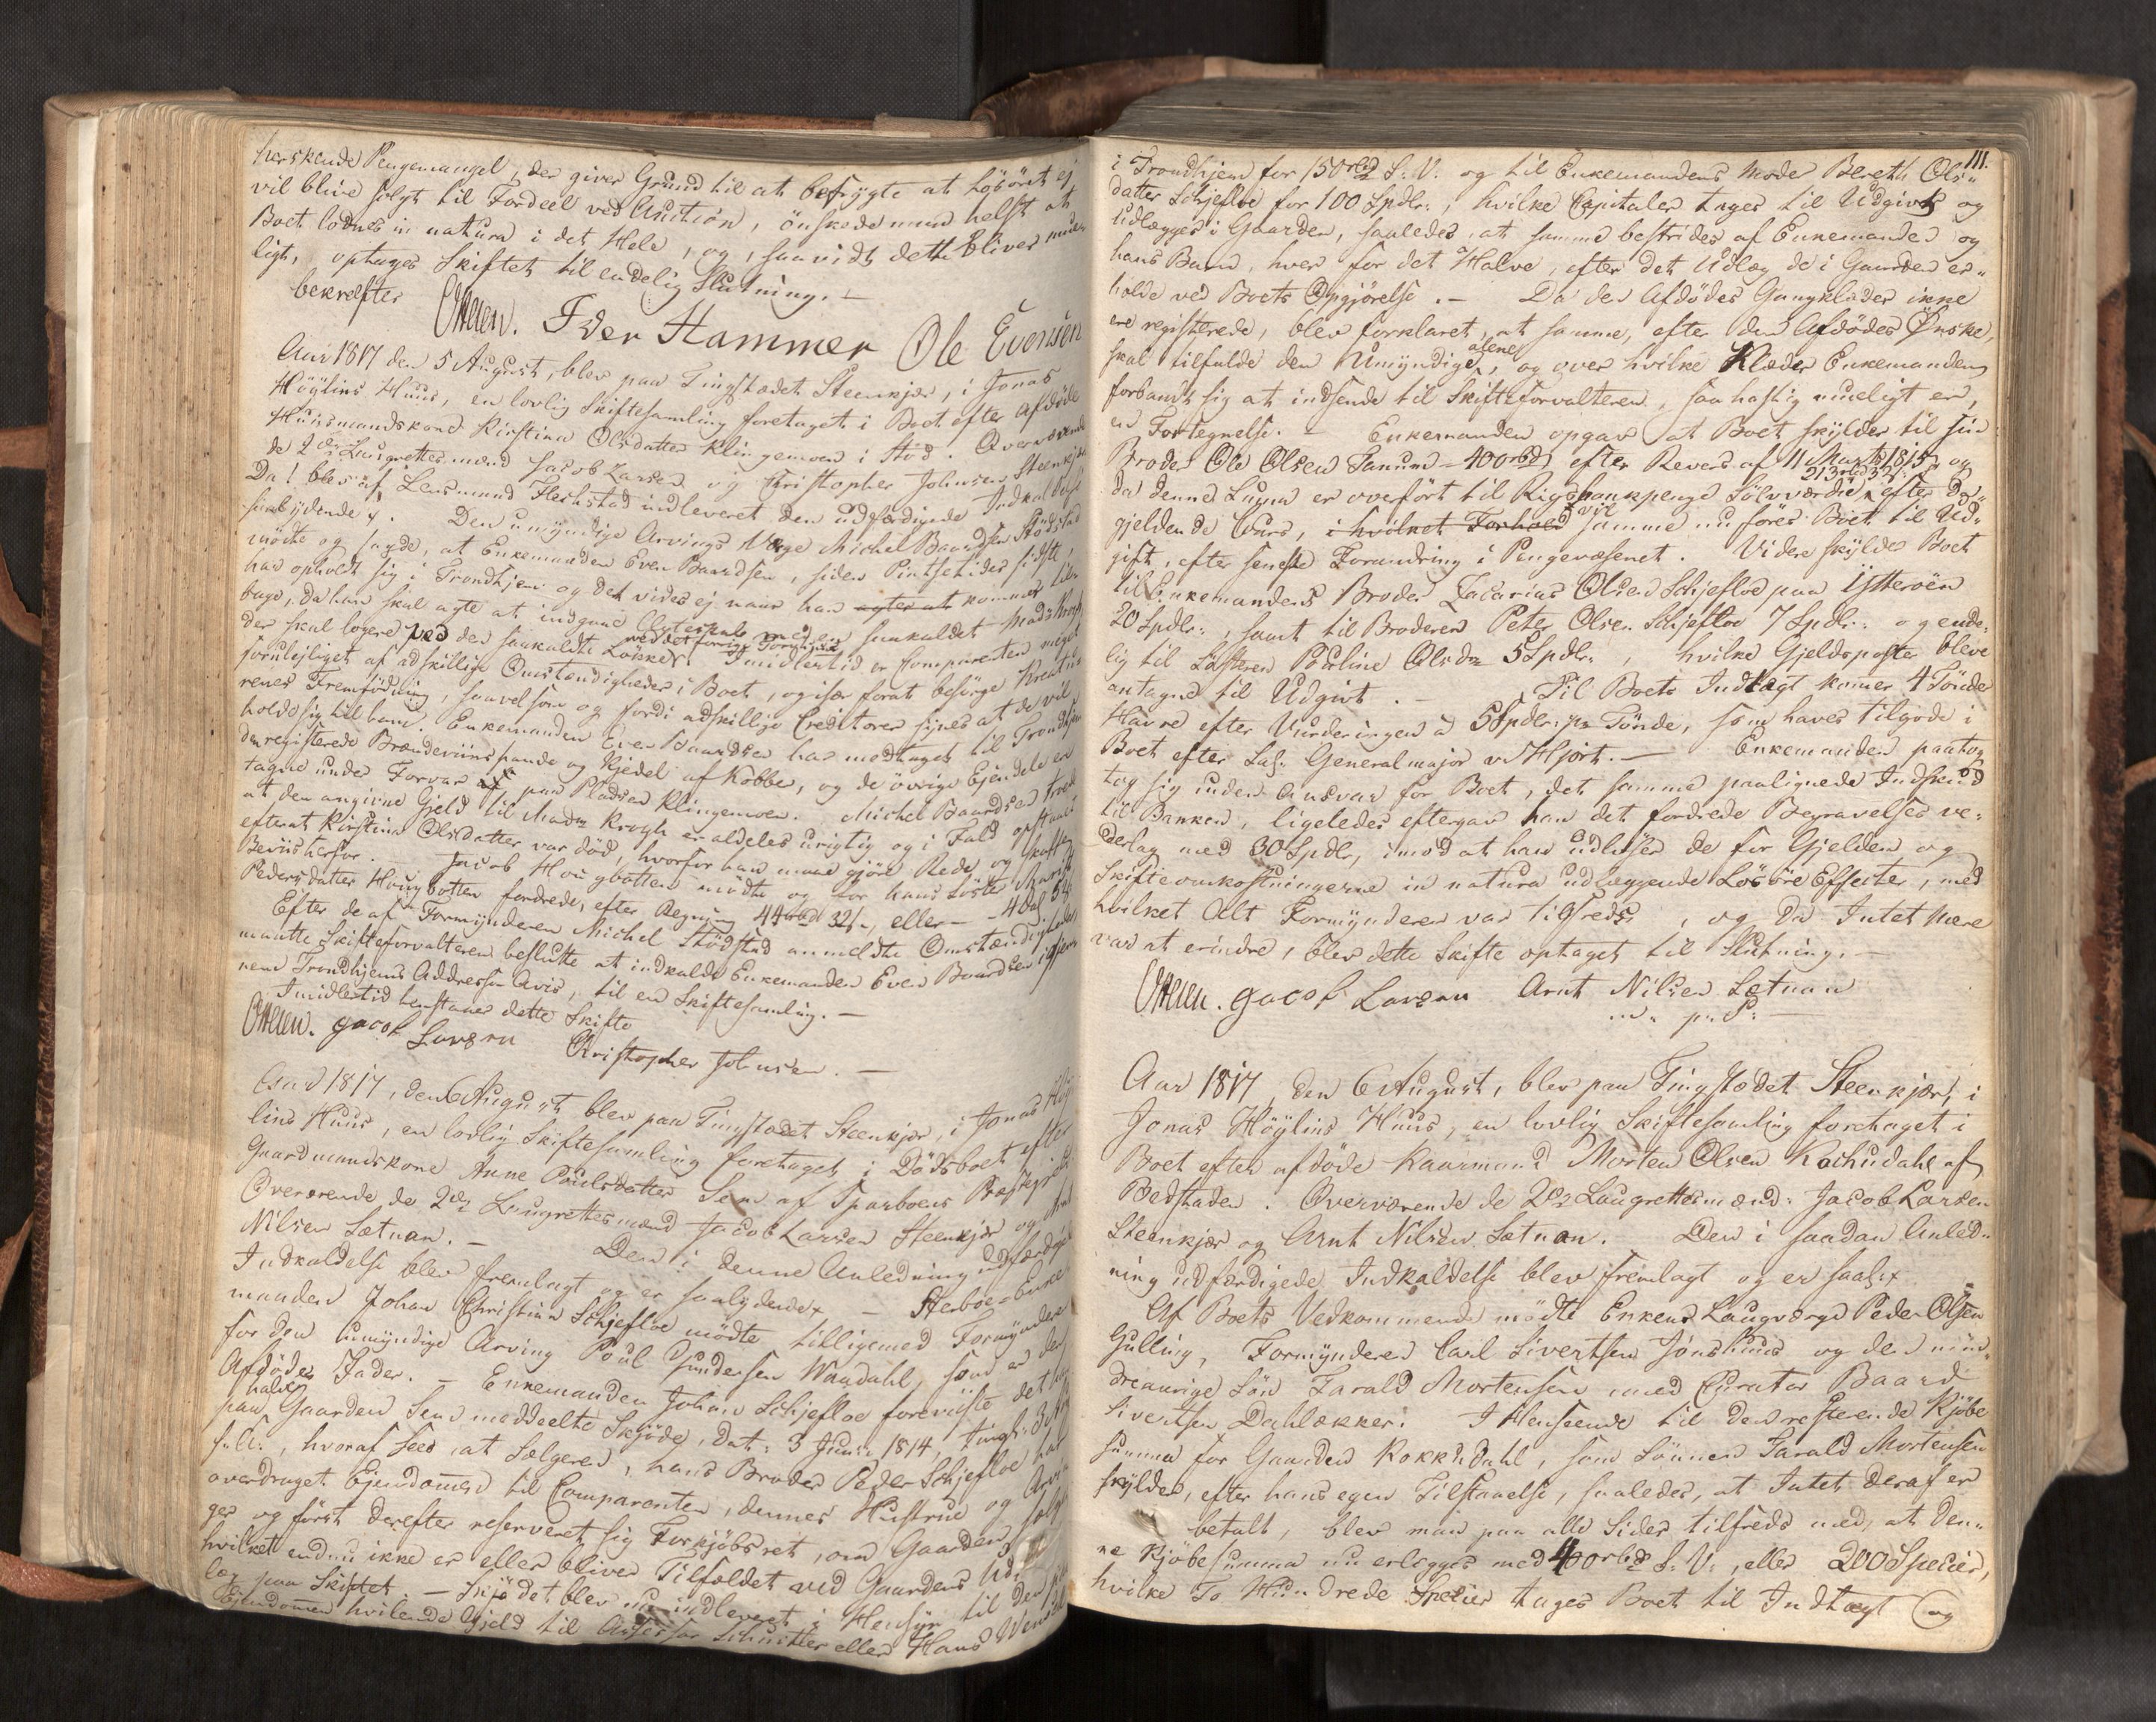 herskende Pengemangel, der giver Grund til at befrygte at Løsöret ej
vil blive solgt til Fordeel ved Auction, önskede man helst at
Boet lodnes in natura i det Hele, og, saavidt dette bliver mue-
ligt, optages Skiftet til endelig Slutning. –
bekræfter
Iver Hammer Ole Evensen
Aar 1817 den 5 August, blev paa Tingstædet Steenkjær, i Jonas
Höÿlins Huus, en lovlig Skiftesamling foretaget i Boet efter afdöde
Huusmandskone Kirstina Olsdatter Klingemoen i Stod. Overværende
de 2de Laugrettesmænd Jacob Larsen og Christopher Johnsen Steenkjær
Da! blev af Lensmand Flekstad indleveret den udfærdigede Indkaldelse
saalydende ɤ. Den umÿndige Arvings Værge Michel Baardsen Stödstad
mödte og sagde, at Enkemanden Even Baardsen, siden Pintsetider sidste,
har opholdt sig i Trondhjem og det vides ej naar han agter at kommer til-
bage, da han skal agte at indgaae Ægteskab med en saakaldet Mads Krogh
der skal logere ved den saakaldte ved det forrige
Imidlertid er Comparenten meget
foruleiliget af adskillige Omstændigheder i Boet, og især forat besörge Kreatu-
renes Fremfödning, saavelsom og fordi adskillige Creditorer sÿnes at de vil
holde sig til ham. Enkemanden Even Baardsen har medtaget til Trondhjem
den registerede Brændeviinspande og Kjedel af Kobber, og de övrige Ejendele er
tagne under Forvar paa Pladsen Klingemoen. Michel Baardsen troer
at den angivne Gjeld til Madm Krogh er aldeles urigtig og i Fald opstaaet
efterat Kirstina Olsdatter var död, hvorfor han maae gjöre Rede og skaffe
Beviis herfor. – Jacob Hougbotten mödte og for hans Söster Marit
Pedersdatter Hougbotten fordrede, efter Regning 44 rbd 32 s, eller – 4 Dal 54
Efter de af Formÿnderen Michel Stödstad anmeldte Omstændigheder
maatte Skifteforvalteren beslutte at indkalde Enkemanden Even Baardsen igjen-
nem Trondhjems Addresse Avis, til en Skiftesamling. –
Imidlertid henstaaer dette Skifte
Jacob Larsen Christopher Johnsen. –
Aar 1817, den 6 August blev paa Tingstædet Steenkjær, i Jonas Höÿ-
lins Huus, en lovlig Skiftesamling foretaget i Dödsboet efter
Gaardmandskone Anne Paulsdatter Sem af Sparboens Præstegield
Overværende de 2de Laugrettesmænd Jacob Larsen Steenkjær og Arnt
Nilsen Sætnan. – Den i denne Anledning udfærdigede
Indkaldelse blev fremlagt og er saalydende ɤ – Sterboe-Enke-
manden Johan Christian Schjefloe mödte tilligemed Formÿnderen
for den umÿndige Arving Poul Gundersen Waadahl, som er den
Afdödes Fader. – Enkemanden Johan Schjefloe foreviiste det ham
paa halve Gaarden Sem meddeelte Skjöde, dat: 3 Junii 1814, tingl:
s. A:, hvoraf sees at Sælgeren, hans Broder Peder Schjefloe har
overdraget Ejendommen til Comparenten, dennes Hustrue og Arvin-
ger og först derefter reserveret sig Forkjöbsret, om Gaarden sælges
hvilket endnu ikke er eller bliver Tilfældet ved Gaardens Ud-
læg paa Skiftet. – Skjödet blev nu indleveret i Hensÿn til den paa
Ejendommen hvilende Gjeld til Assessor Schnitler eller Hans
111.
i Trondhjem for 150 rbd S. V. og til Enkemandens Moder Bereth Ols-
datter Schjefloe for 100 Spdlr:, hvilke Capitaler tages til Udgivt og
udlægges i Gaarden, saaledes at samme bestrides af Enkemanden og
hans Barn, hver for det Halve, efter det Udlæg de i Gaarden er-
holde ved Boets Opgjörelse. – Da den Afdödes Gangklæder ikke
ere registerede, blev forklaret, at samme, efter den Afdödes Önske,
skal tilfalde den Umÿndige alene, og over hvilke Klæder Enkemanden
forbandt sig at indsende til Skifteforvalteren, saa hastig mueligt er,
en Fortegnelse. – Enkemanden opgav at Boet skÿlder til sin
Broder Ole Olsen Tanum – 400 rbd efter Revers af 11 Marts 1815 og
da denne Summa er overfört til Rigsbankpenge Sölvværdie 213 rbd 32 s: efter da-
gjeldende Cours, i hvilket Forhold vil samme nu föres Boet til Ud-
gift, efter seneste Forandring i Pengevæsenet. Videre skÿlder Boet
til Enkemandens Broder Zacarias Olsen Schjefloe paa Ÿtteröen
20 Spdlr:, samt til Broderen Peter Olsen Schjefloe 7 Spdlr: og ende-
lig til Sösteren Pouline Olsdr 5 Spdlr:, hvilke Gjeldsposter bleve
antagne til Udgivt. – Til Boets Indtægt komer 4 Tönder
Havre efter Vurderingen a 5 Spdlr: pr Tönde, som haves tilgode i
Boet efter Sal: Generalmajor v. Hjort. – Enkemanden paatog
tog sig uden Ansvar for Boet, det samme paalignede Indskud
til Banken, ligeledes eftergav han det fordrede Begravelses ve-
derlag med 30 Spdlr, imod at han udlöser de for Gjelden og
Skifteomkostningerne in natura udlæggende Lösöre Effecter, med
hvilket Alt Formÿnderen var tilfreds, og da Intet mere
var at erindre, blev dette Skifte optaget til Slutning. –
Jacob Larsen Arnt Nilsen Sætnan
m. p. P: –
Aar 1817 den 6 August, blev paa Tingstædet Steenkjær, i
Jonas Höÿlins Huus, en lovlig Skiftesamling foretaget i
Boet efter afdöde Kaarmand Morten Olsen Kochudahl af
Bedstaden. Overværende de 2de Laugrettesmænd: Jacob Larsen
Steenkjær og Arnt Nilsen Sætnan. Den i saadan Anled-
ning udfærdigede Indkaldelse blev fremlagt og er saal: ɤ
Af Boets Vedkommende mödte Enkens Laugværge Peder Olsen
Gulling, Formÿnderen Carl Sivertsen Jönshuus og den min-
dreaarige Sön Tarald Mortensen med Curator Baard
Sivertsen Dahlækker. I Henseende til den resterende Kjöbe
summa for Gaarden Kokkudahl, som Sönnen Tarald Mortensen
skÿlder, efter hans egen Tilstaaelse, saaledes, at Intet deraf er
betalt, blev man paa alle Sider tilfreds med, at den-
ne Kjöbesumma nu erlægges med 400 rbd S. V., eller 200 Specier,
hvilke To Hundrede Specier tages Boet til Indtægt og